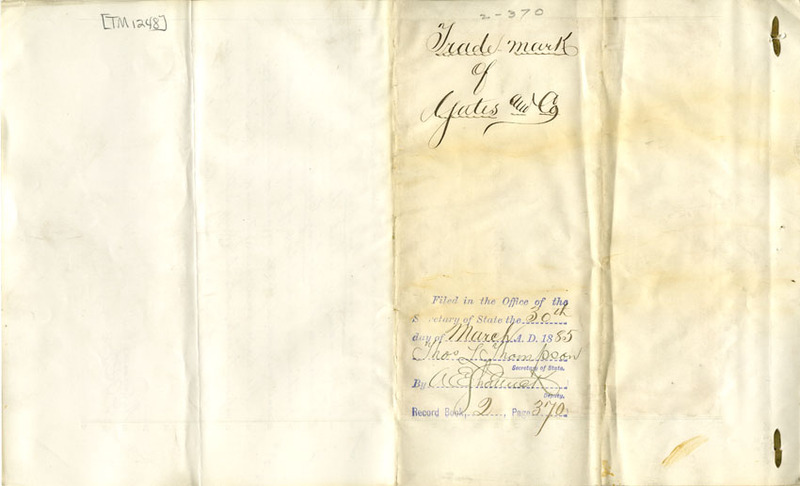 [TM 1248]
2-370
Trade mark
of
Gates and Co
Filed in the Office of the
Secretary of State the 30th
day of March A. D. 1885
Thos L Thompson
Secretary of State.
By
Deputy.
Record Book, 2, Page 370